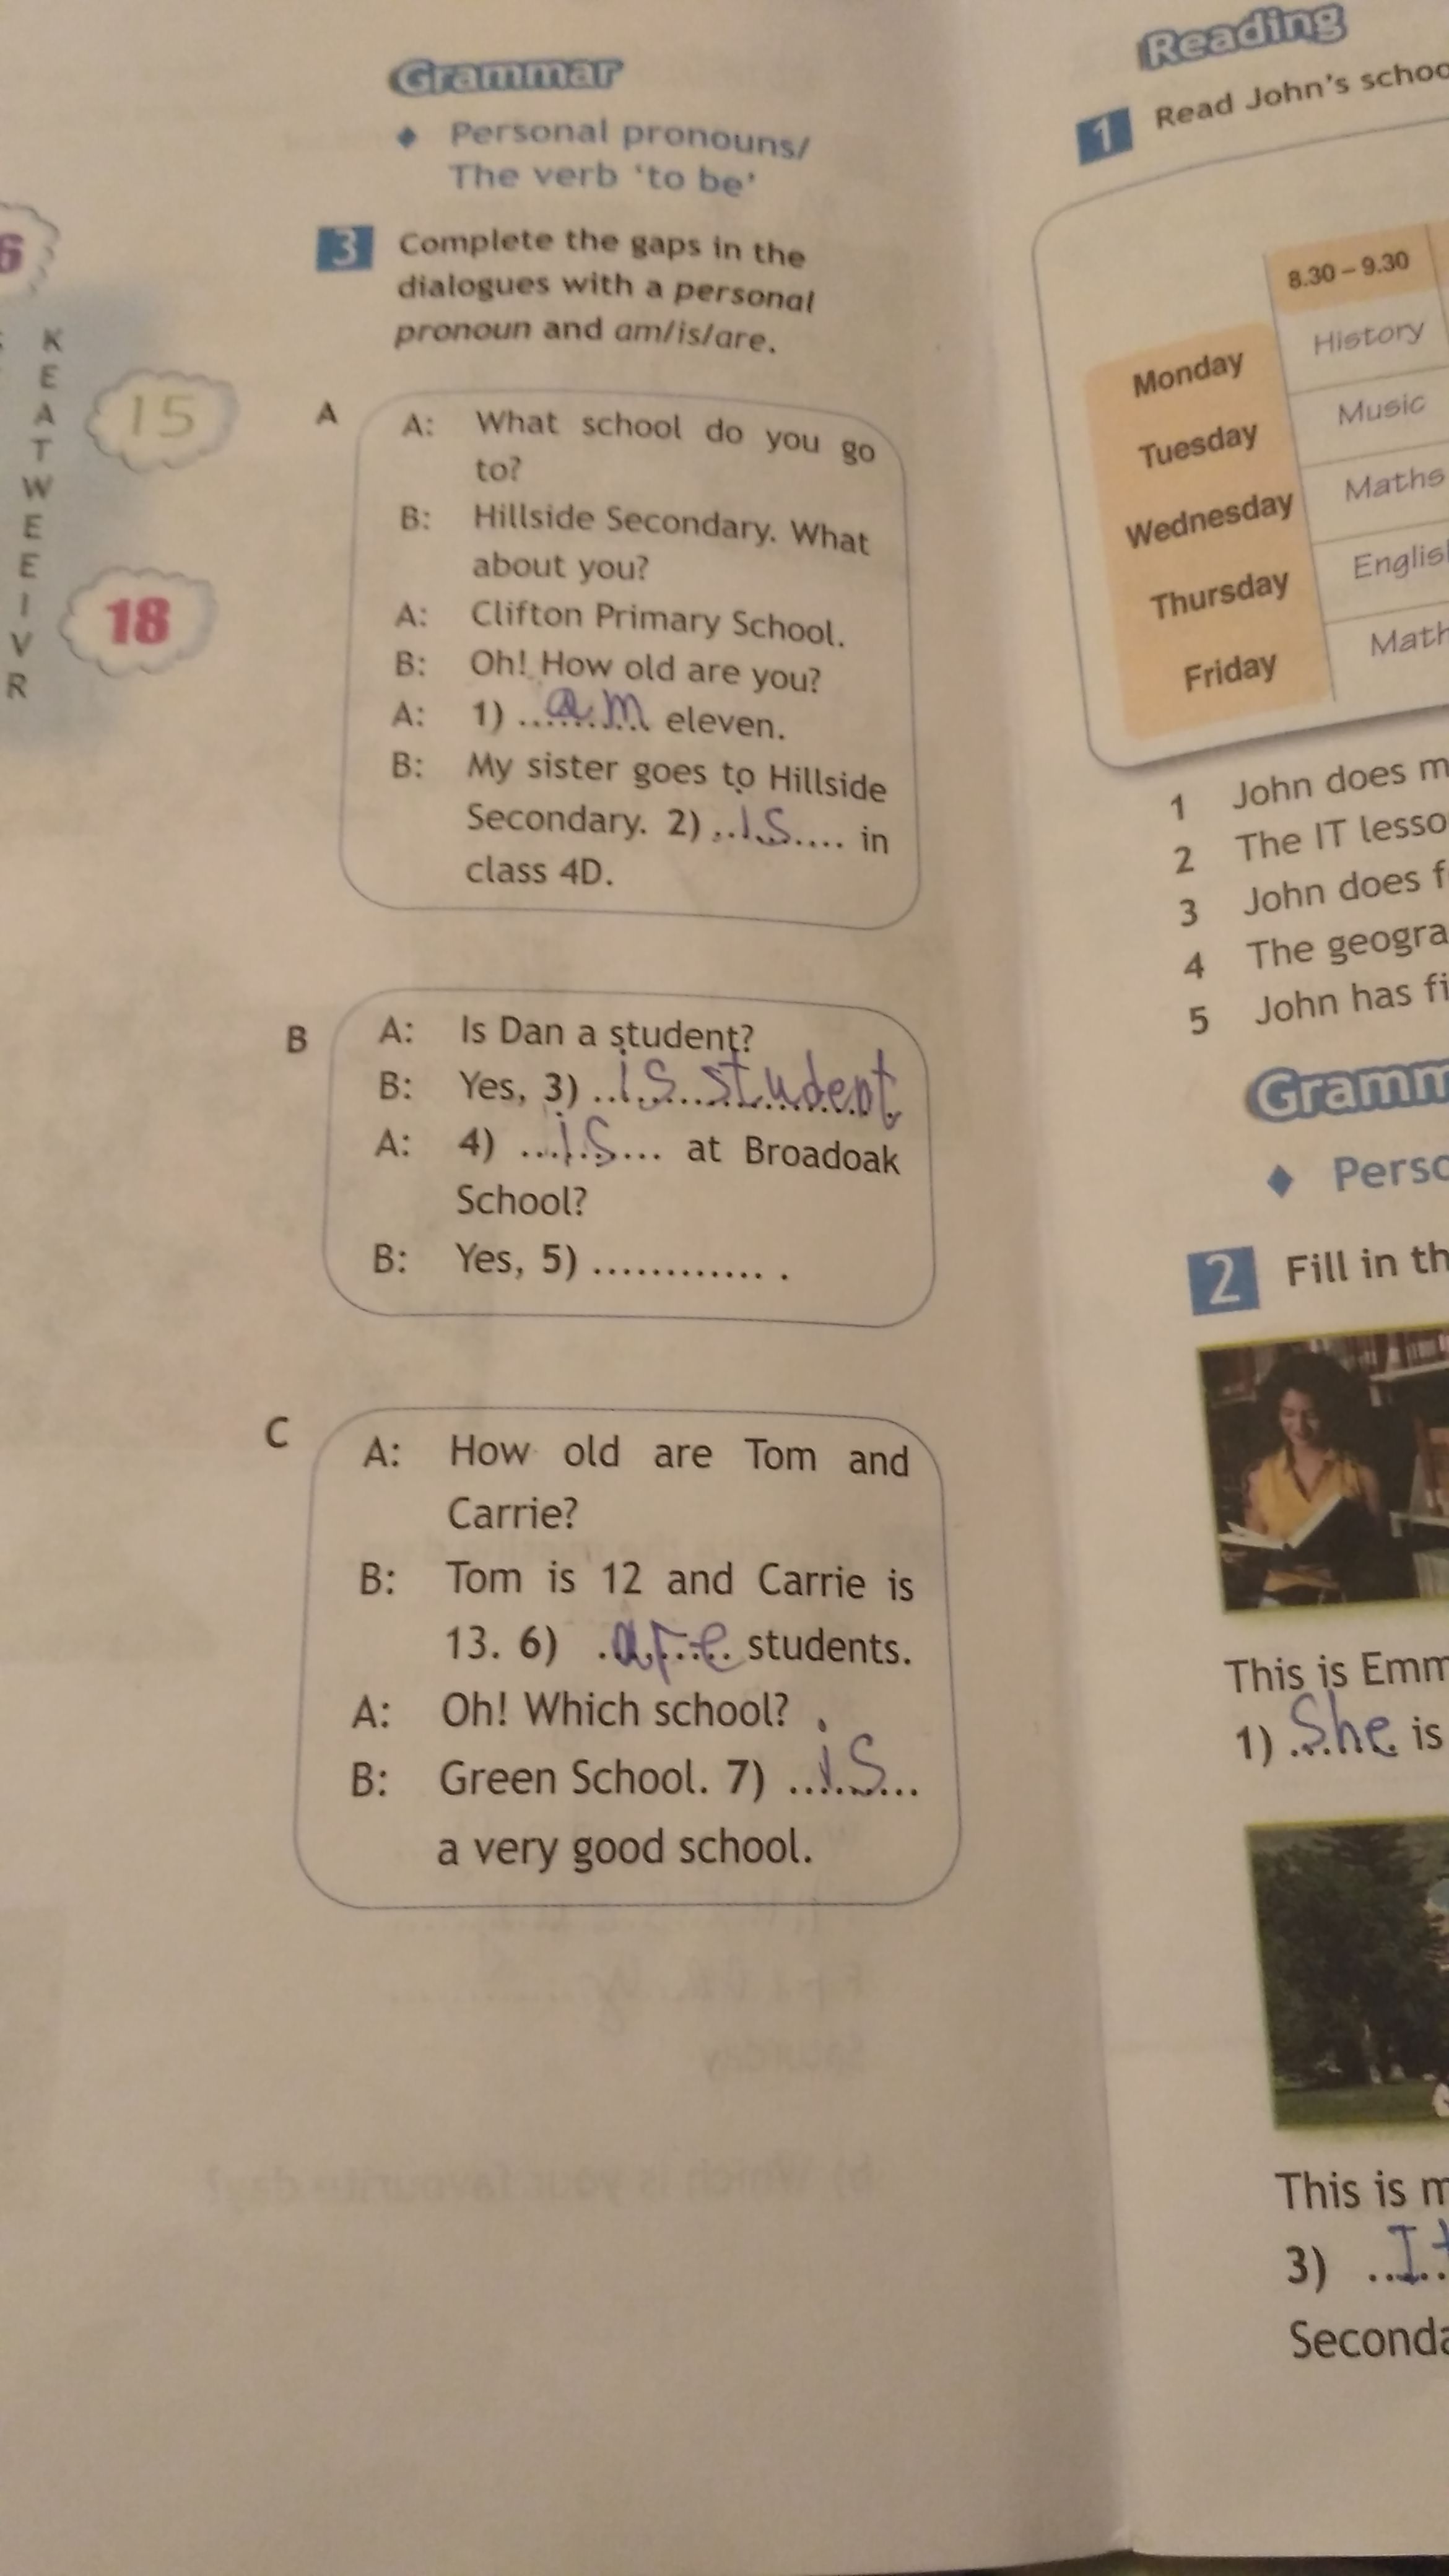 6
K
E
A
T
W
E
E
I
V
R
15
18
Grammar
◆ Personal pronouns/
The verb ‘to be’
3 Complete the gaps in the
dialogues with a personal
pronoun and am/is/are.
A
A: What school do you go
to?
B: Hillside Secondary. What
about you?
A: Clifton Primary School.
B: Oh! How old are you?
A: 1) ..am.. eleven.
B: My sister goes to Hillside
Secondary. 2) ..is.... in
class 4D.
B
A: Is Dan a student?
B: Yes, 3) ..is student
A: 4) ...is... at Broadoak
School?
B: Yes, 5) ............. .
C
A: How old are Tom and
Carrie?
B: Tom is 12 and Carrie is
13. 6) .are.. students.
A: Oh! Which school?
B: Green School. 7) ...is...
a very good school.
Reading
1 Read John’s schoo
8.30 – 9.30
Monday History
Tuesday Music
Wednesday Maths
Thursday Englis
Friday Math
1 John does m
2 The IT lesso
3 John does f
4 The geogra
5 John has fi
Gramm
◆ Perso
2 Fill in th
This is Emm
1) .She. is
This is m
3) ..It
Seconda